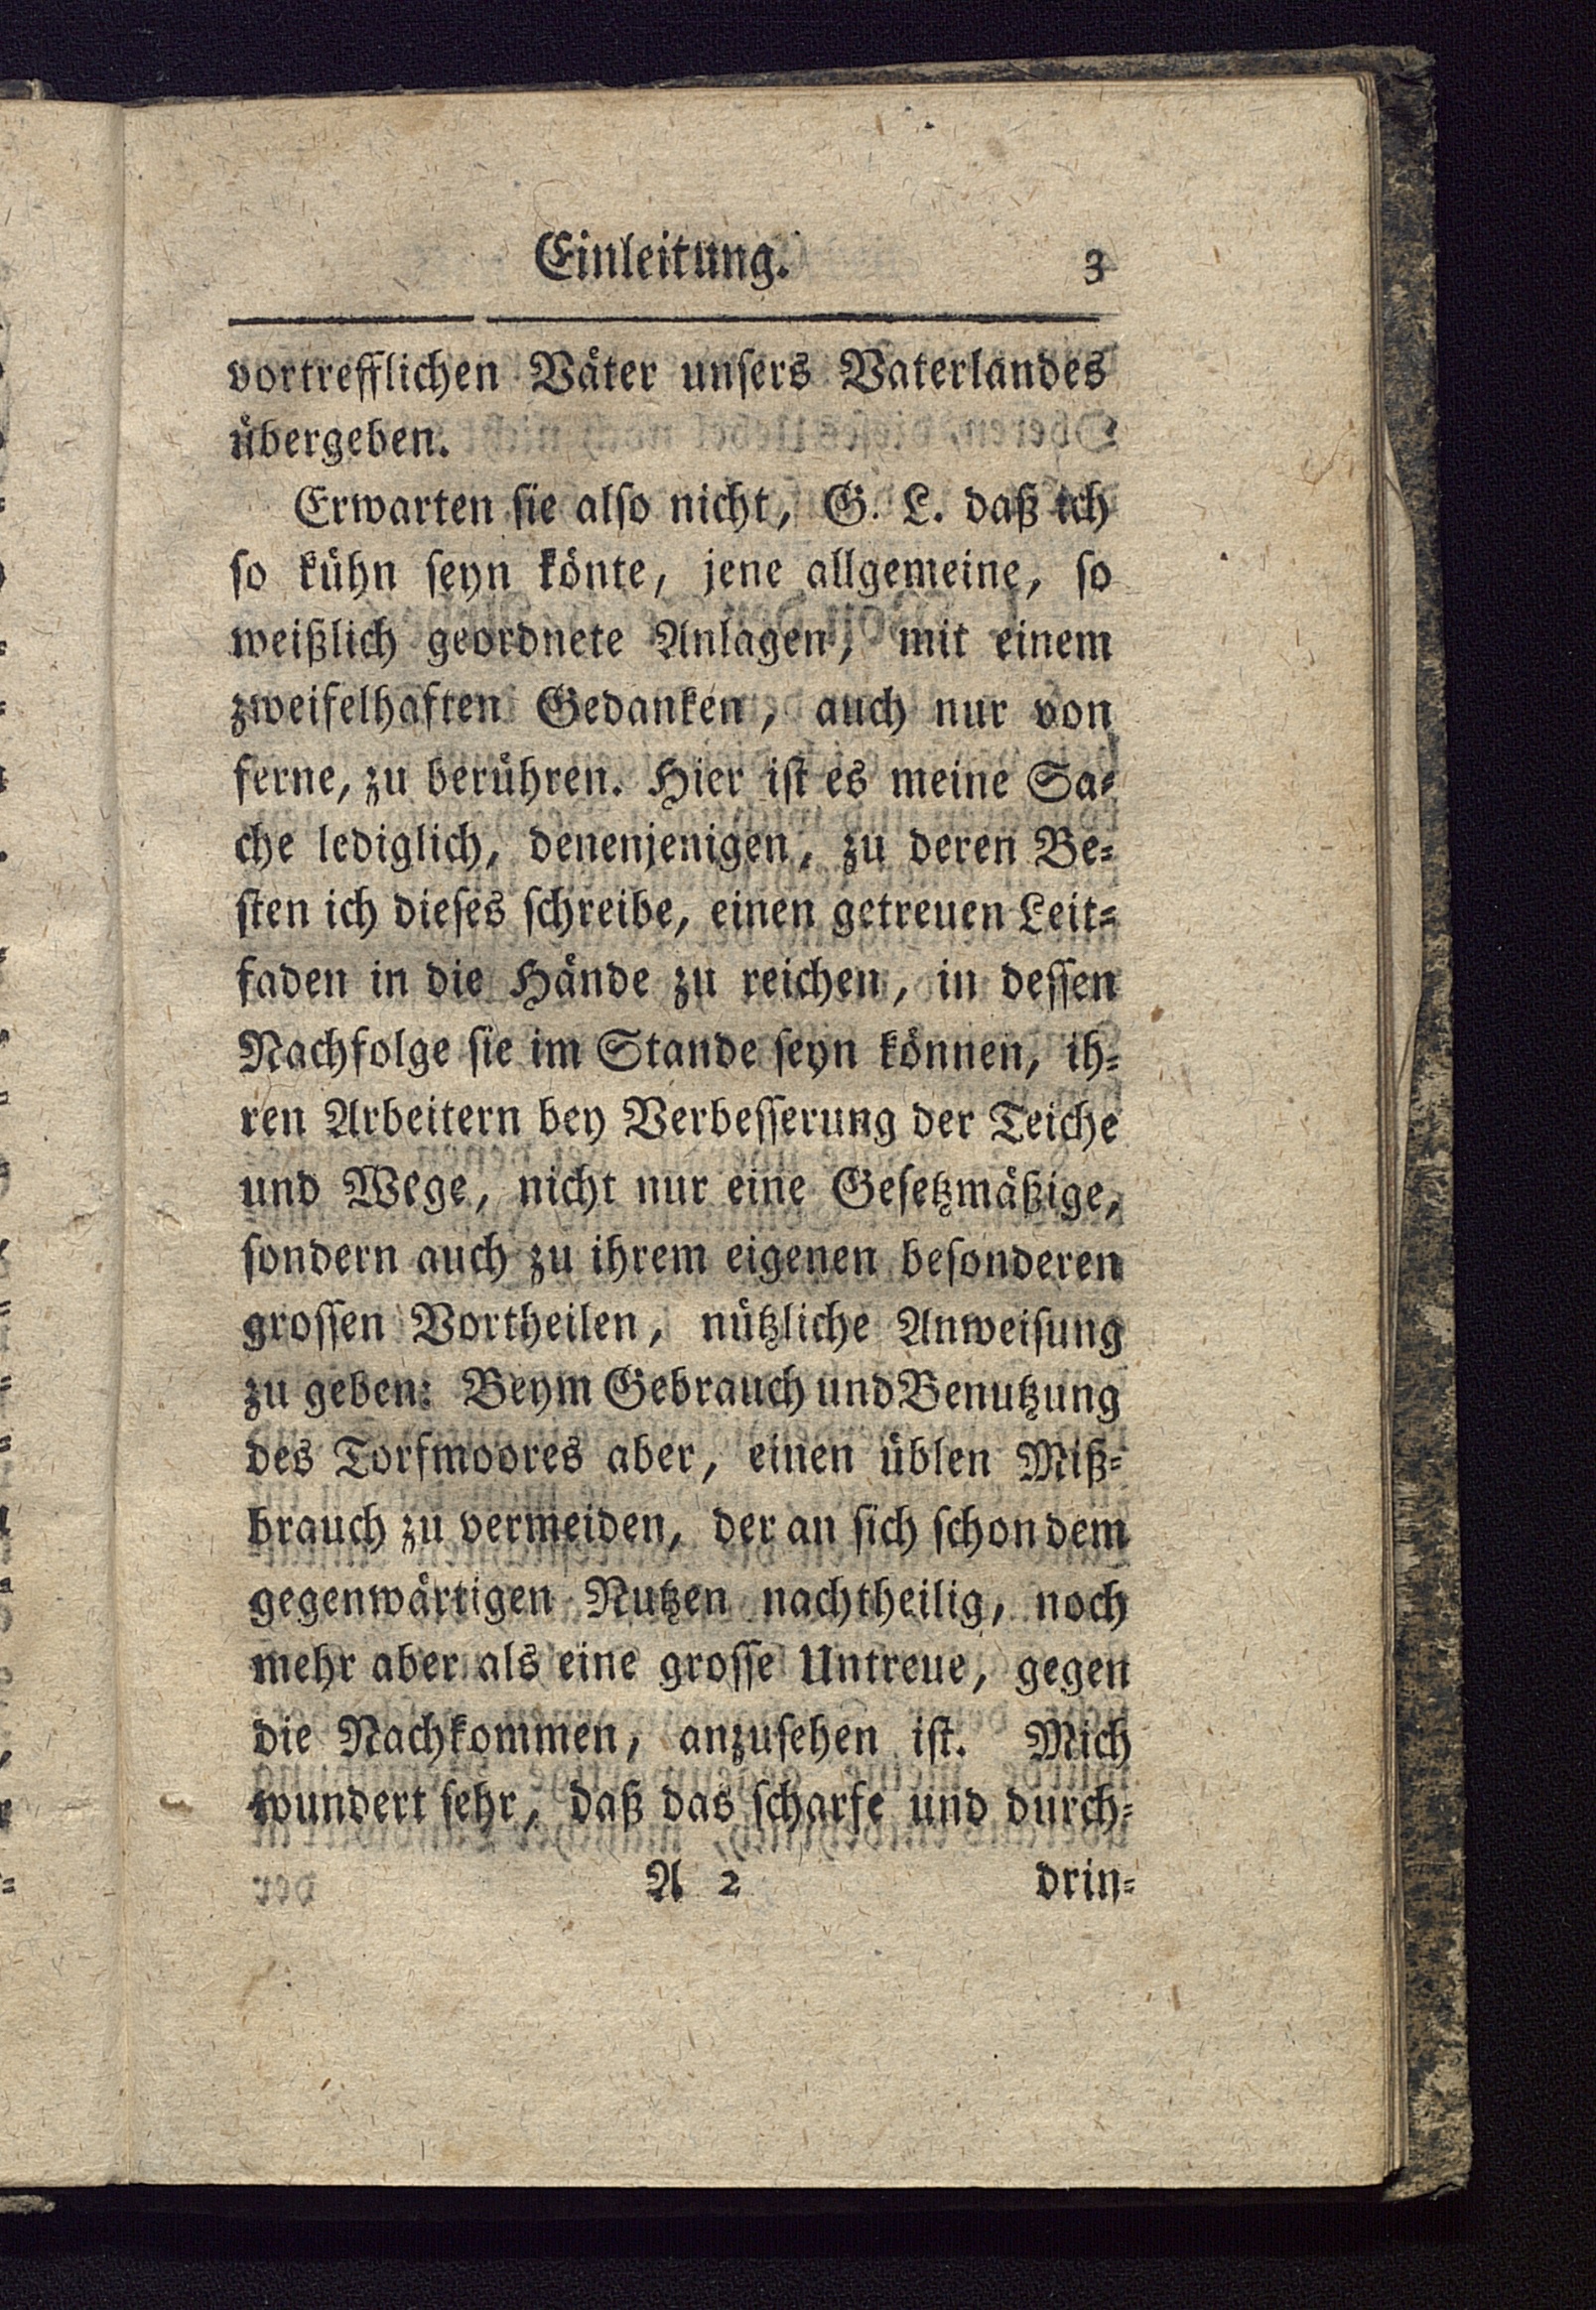 Einleitung. 3
vortrefflichen Väter unsers Vaterlandes
übergeben.
Erwarten sie also nicht, G. L. daß ich
so kühn seyn könte, jene allgemeine, so
weißlich geordnete Anlagen, mit einem
zweifelhaften Gedanken, auch nur von
ferne, zu berühren. Hier ist es meine Sa-
che lediglich, denenjenigen, zu deren Be-
sten ich dieses schreibe, einen getreuen Leit-
faden in die Hände zu reichen, in dessen
Nachfolge sie im Stande seyn können, ih-
ren Arbeitern bey Verbesserung der Teiche
und Wege, nicht nur eine Gesetzmäßige,
sondern auch zu ihrem eigenen besonderen
grossen Vortheilen, nützliche Anweisung
zu geben: Beym Gebrauch und Benutzung
des Torfmoores aber, einen üblen Miß-
brauch zu vermeiden, der an sich schon dem
gegenwärtigen Nutzen nachtheilig, noch
mehr aber als eine grosse Untreue, gegen
die Nachkommen, anzusehen ist. Mich
wundert sehr, daß das scharfe und durch-
A 2 drin-